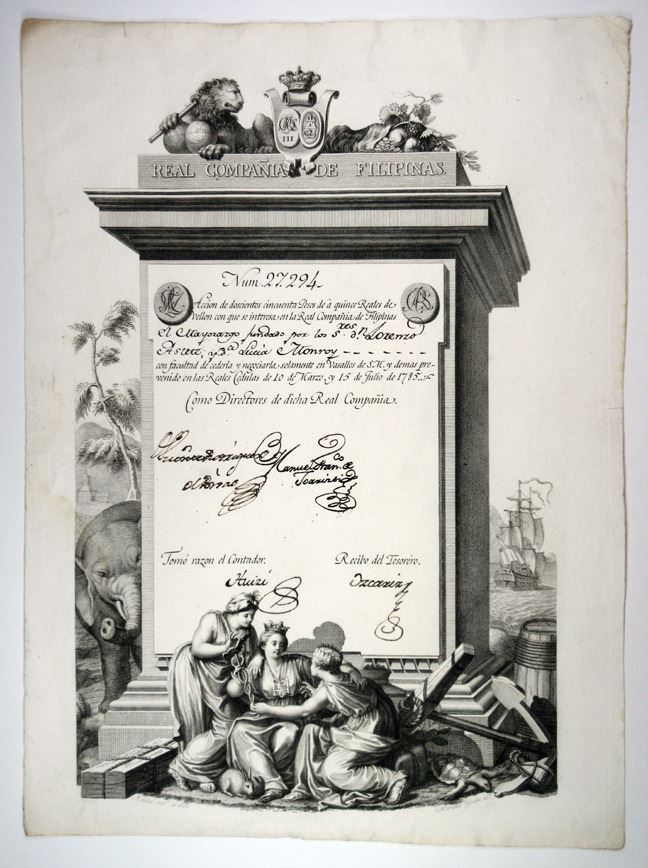 III
REAL COMPAÑIA DE FILIPINAS.
Num. 27.294.
Accion de doscientos cincuenta Pesos de à quince Reales de
vellon con que se interesa en la Real Compañia de Filipinas
el Mayorazgo fundado por los S.res d.n Lorenzo
y D.a Lucia Monroy
con facultad de cederla y negociarla solamente en Vasallos de S.M. y demas pre-
venido en las Reales Cedulas de 10 de Marzo y 15 de Julio de 1785.
Como Directores de dicha Real Compañia.
Manuel Fran.co de
Tomó razon el Contador.
Recibo del Tesorero.